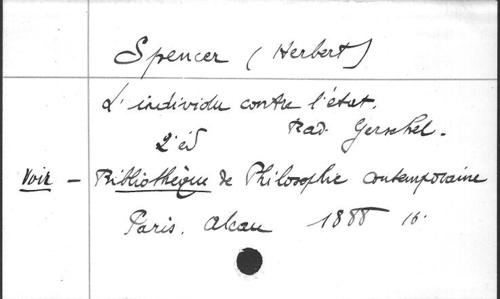 Spencer (Herbert)
L'individu contre l'état.
2e éd Trad. Gerschel.
Voir - Bibliothèque de Philosophie contemporaine
Paris. Alcan 1888 16.